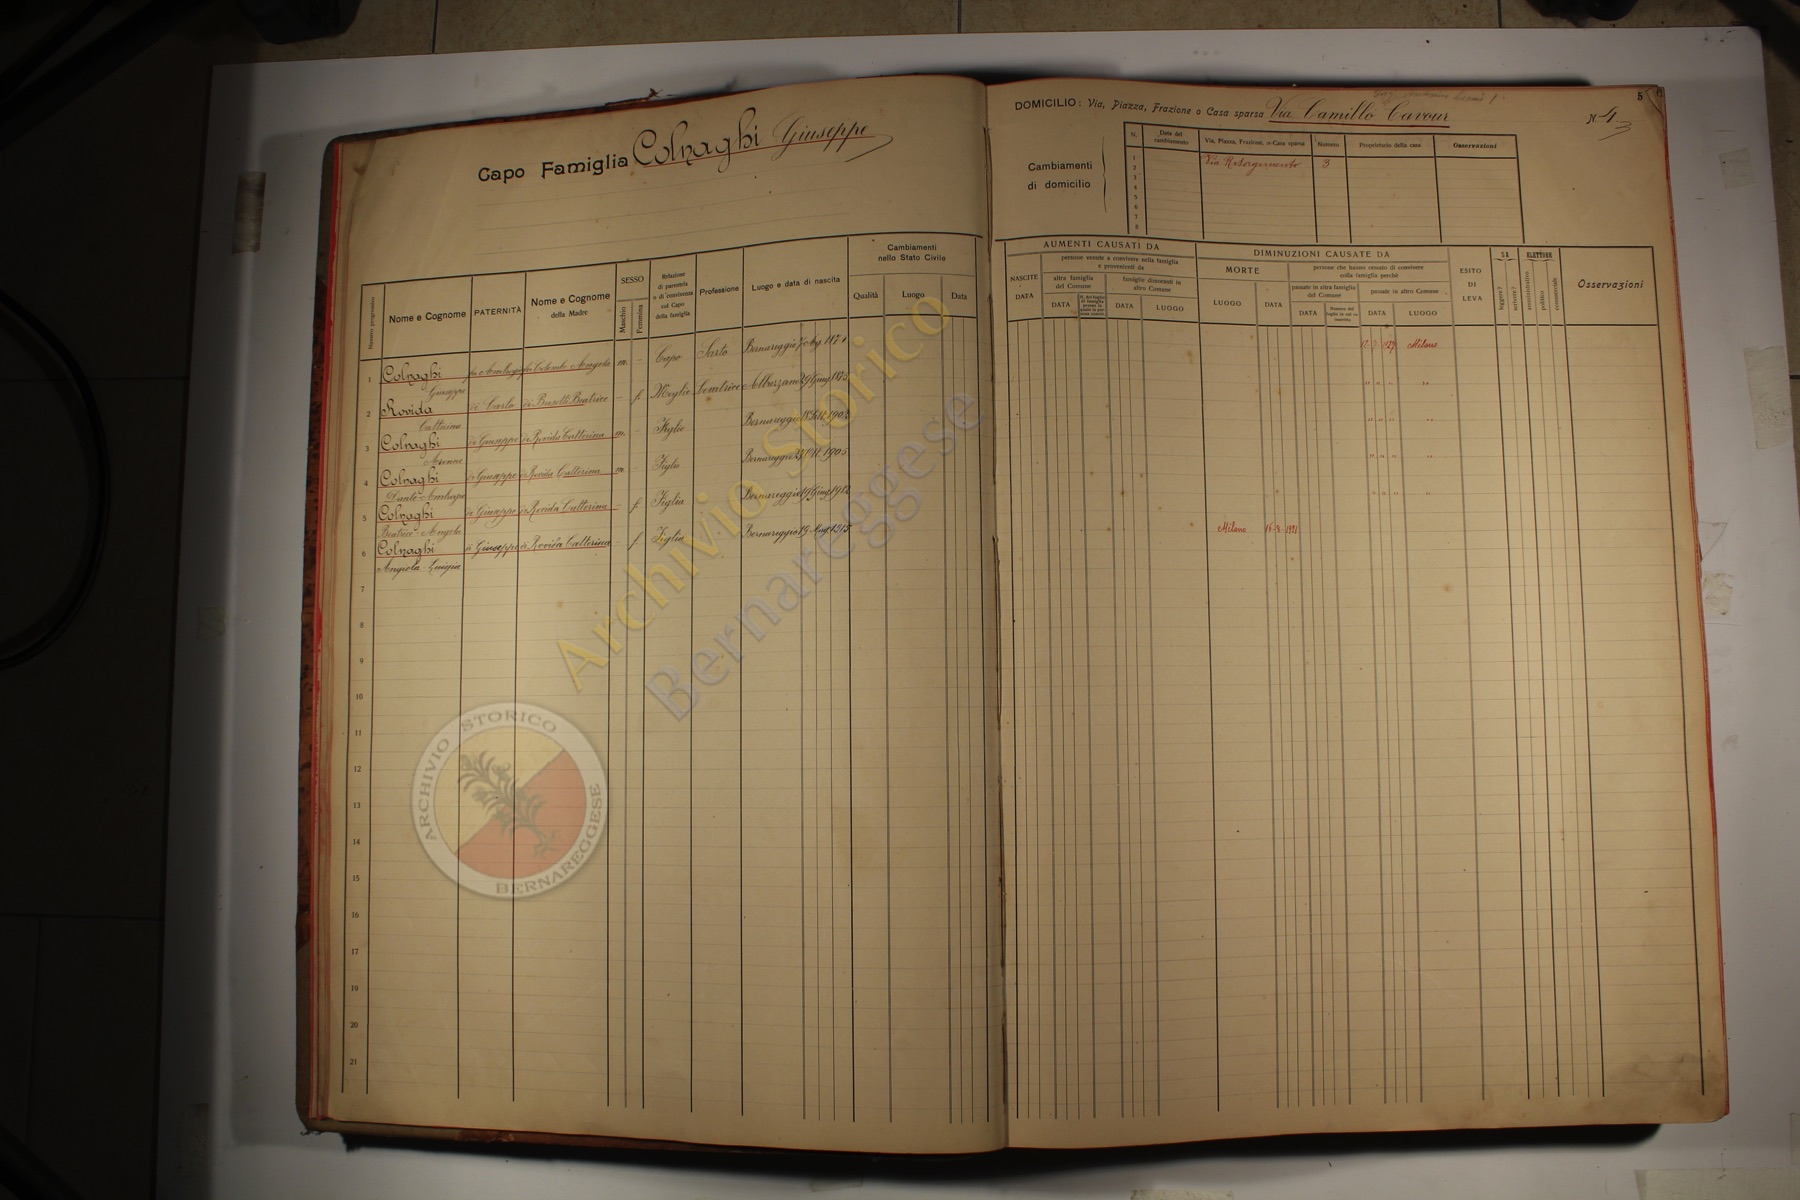 Capo Famiglia Colnaghi Giuseppe
5
DOMICILIO: Via, Piazza, Frazione o Casa sparsa Via Camillo Cavour N. 4
Cambiamenti di domicilio
N. Data del cambiamento Via, Piazza, Frazione, o Casa sparsa Numero Proprietario della casa Osservazioni
1 Via Risorgimento 3
2
3
4
5
6
7
8
Numero progressivo
Nome e Cognome
PATERNITÀ
Nome e Cognome della Madre
SESSO
Maschio
Femmina
Relazione di parentela o di convivenza col Capo della famiglia
Professione
Luogo e data di nascita
Cambiamenti nello Stato Civile
Qualità Luogo Data
AUMENTI CAUSATI DA
NASCITE
DATA
persone venute a convivere nella famiglia e provenienti da
altra famiglia del Comune
DATA
famiglie dimoranti in altro Comune
DATA LUOGO
DIMINUZIONI CAUSATE DA
MORTE
LUOGO DATA
persone che hanno cessato di convivere colla famiglia perchè
passate in altra famiglia del Comune
DATA
passate in altro Comune
DATA LUOGO
ESITO DI LEVA
SA
leggere?
scrivere?
ELETTORE
amministrativo
politico
commerciale
Osservazioni
1 Colnaghi Giuseppe fu Ambrogio fu Colombo Angela m. - Capo Sarto Bernareggio Milano
2 Rovida Catterina di Carlo di Busetti Beatrice - f. Moglie Albuzzano 29 Giug. 1875 " " " "
3 Colnaghi di Giuseppe di Rovida Catterina m. - Figlio Bernareggio " " " "
4 Colnaghi Dante-Ambrogio di Giuseppe di Rovida Catterina m. - Figlio Bernareggio 1905 " " " "
5 Colnaghi Beatrice-Angela di Giuseppe di Rovida Catterina - f. Figlia Bernareggio 19 Giug. 1912 " " " "
6 Colnaghi Angiola-Luigia di Giuseppe di Rovida Catterina - f. Figlia Bernareggio 19 1915 Milano 1921
7
8
9
10
11
12
13
14
15
16
17
18
19
20
21
Archivio Storico
Bernareggese
ARCHIVIO STORICO BERNAREGGESE